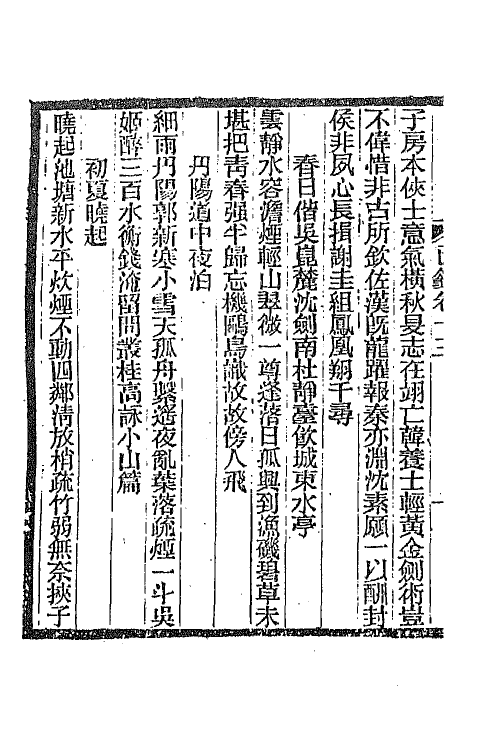 子房本俠士意氣橫秋旻志在翊亡韓養士輕黃金劍術豈
不偉惜非古所欽佐漢旣龍躍報秦亦淵沈素願一以酬封
侯非夙心長揖謝圭組鳳凰翔千尋
春日偕吳崑麓沈劍南杜靜臺飮城東水亭
雲靜水容澹煙輕山翠微一尊逢落日孤興到漁磯碧草未
堪把靑春强半歸忘機鷗鳥識故故傍人飛
丹陽道中夜泊
細雨丹陽郭新寒小雪天孤舟繫遙夜亂葉落疏煙一斗吳
姬醉三百水衡錢淹留問叢桂高詠小山篇
初夏曉起
曉起池塘新水平炊煙不動四鄰淸放梢疏竹弱無奈挾子